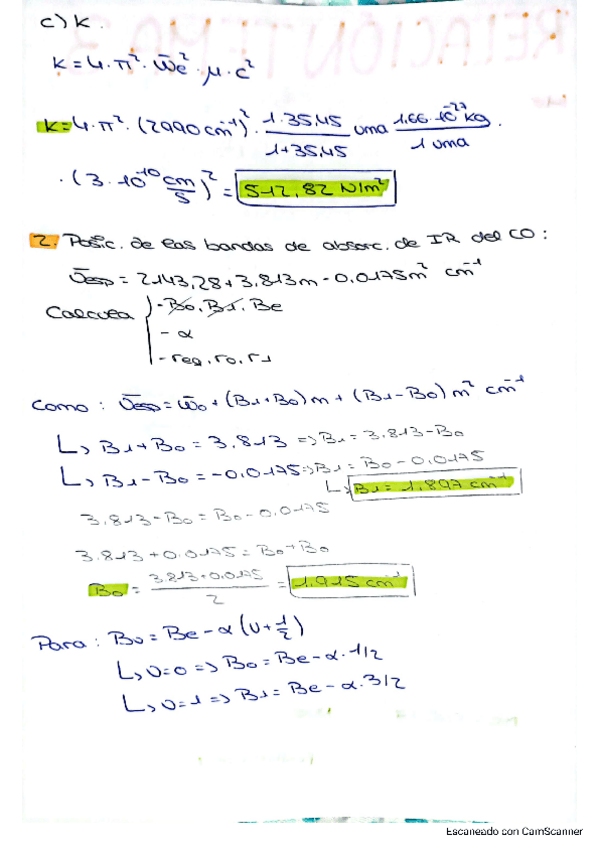 c) k.
k = 4·π²·ω̄e²·μ·c²
k = 4·π²·(2990 cm⁻¹)²· 1·35,45 / 1+35,45 uma 1,66·10⁻²⁷ kg / 1 uma ·
·(3·10⁻¹⁰ cm/s)² = 512,82 N/m²
2. Posic. de las bandas de absorc. de IR del CO:
ῡesp = 2143,28 + 3,813m - 0,0175m² cm⁻¹
Calcula
- B0, B1, Be
- α
- req, r0, r1
Como: ῡesp = ω̄0 + (B1+B0)m + (B1-B0)m² cm⁻¹
↳ B1+B0 = 3,813 => B1 = 3,813-B0
↳ B1-B0 = -0,0175 => B1 = B0 - 0,0175
↳ B1 = 1,897 cm⁻¹
3,813-B0 = B0-0,0175
3,813+0,0175 = B0+B0
B0 = 3,813+0,0175 / 2 = 1,915 cm⁻¹
Para: Bυ = Be - α(υ+1/2)
↳ υ=0 => B0 = Be - α·1/2
↳ υ=1 => B1 = Be - α·3/2
Escaneado con CamScanner